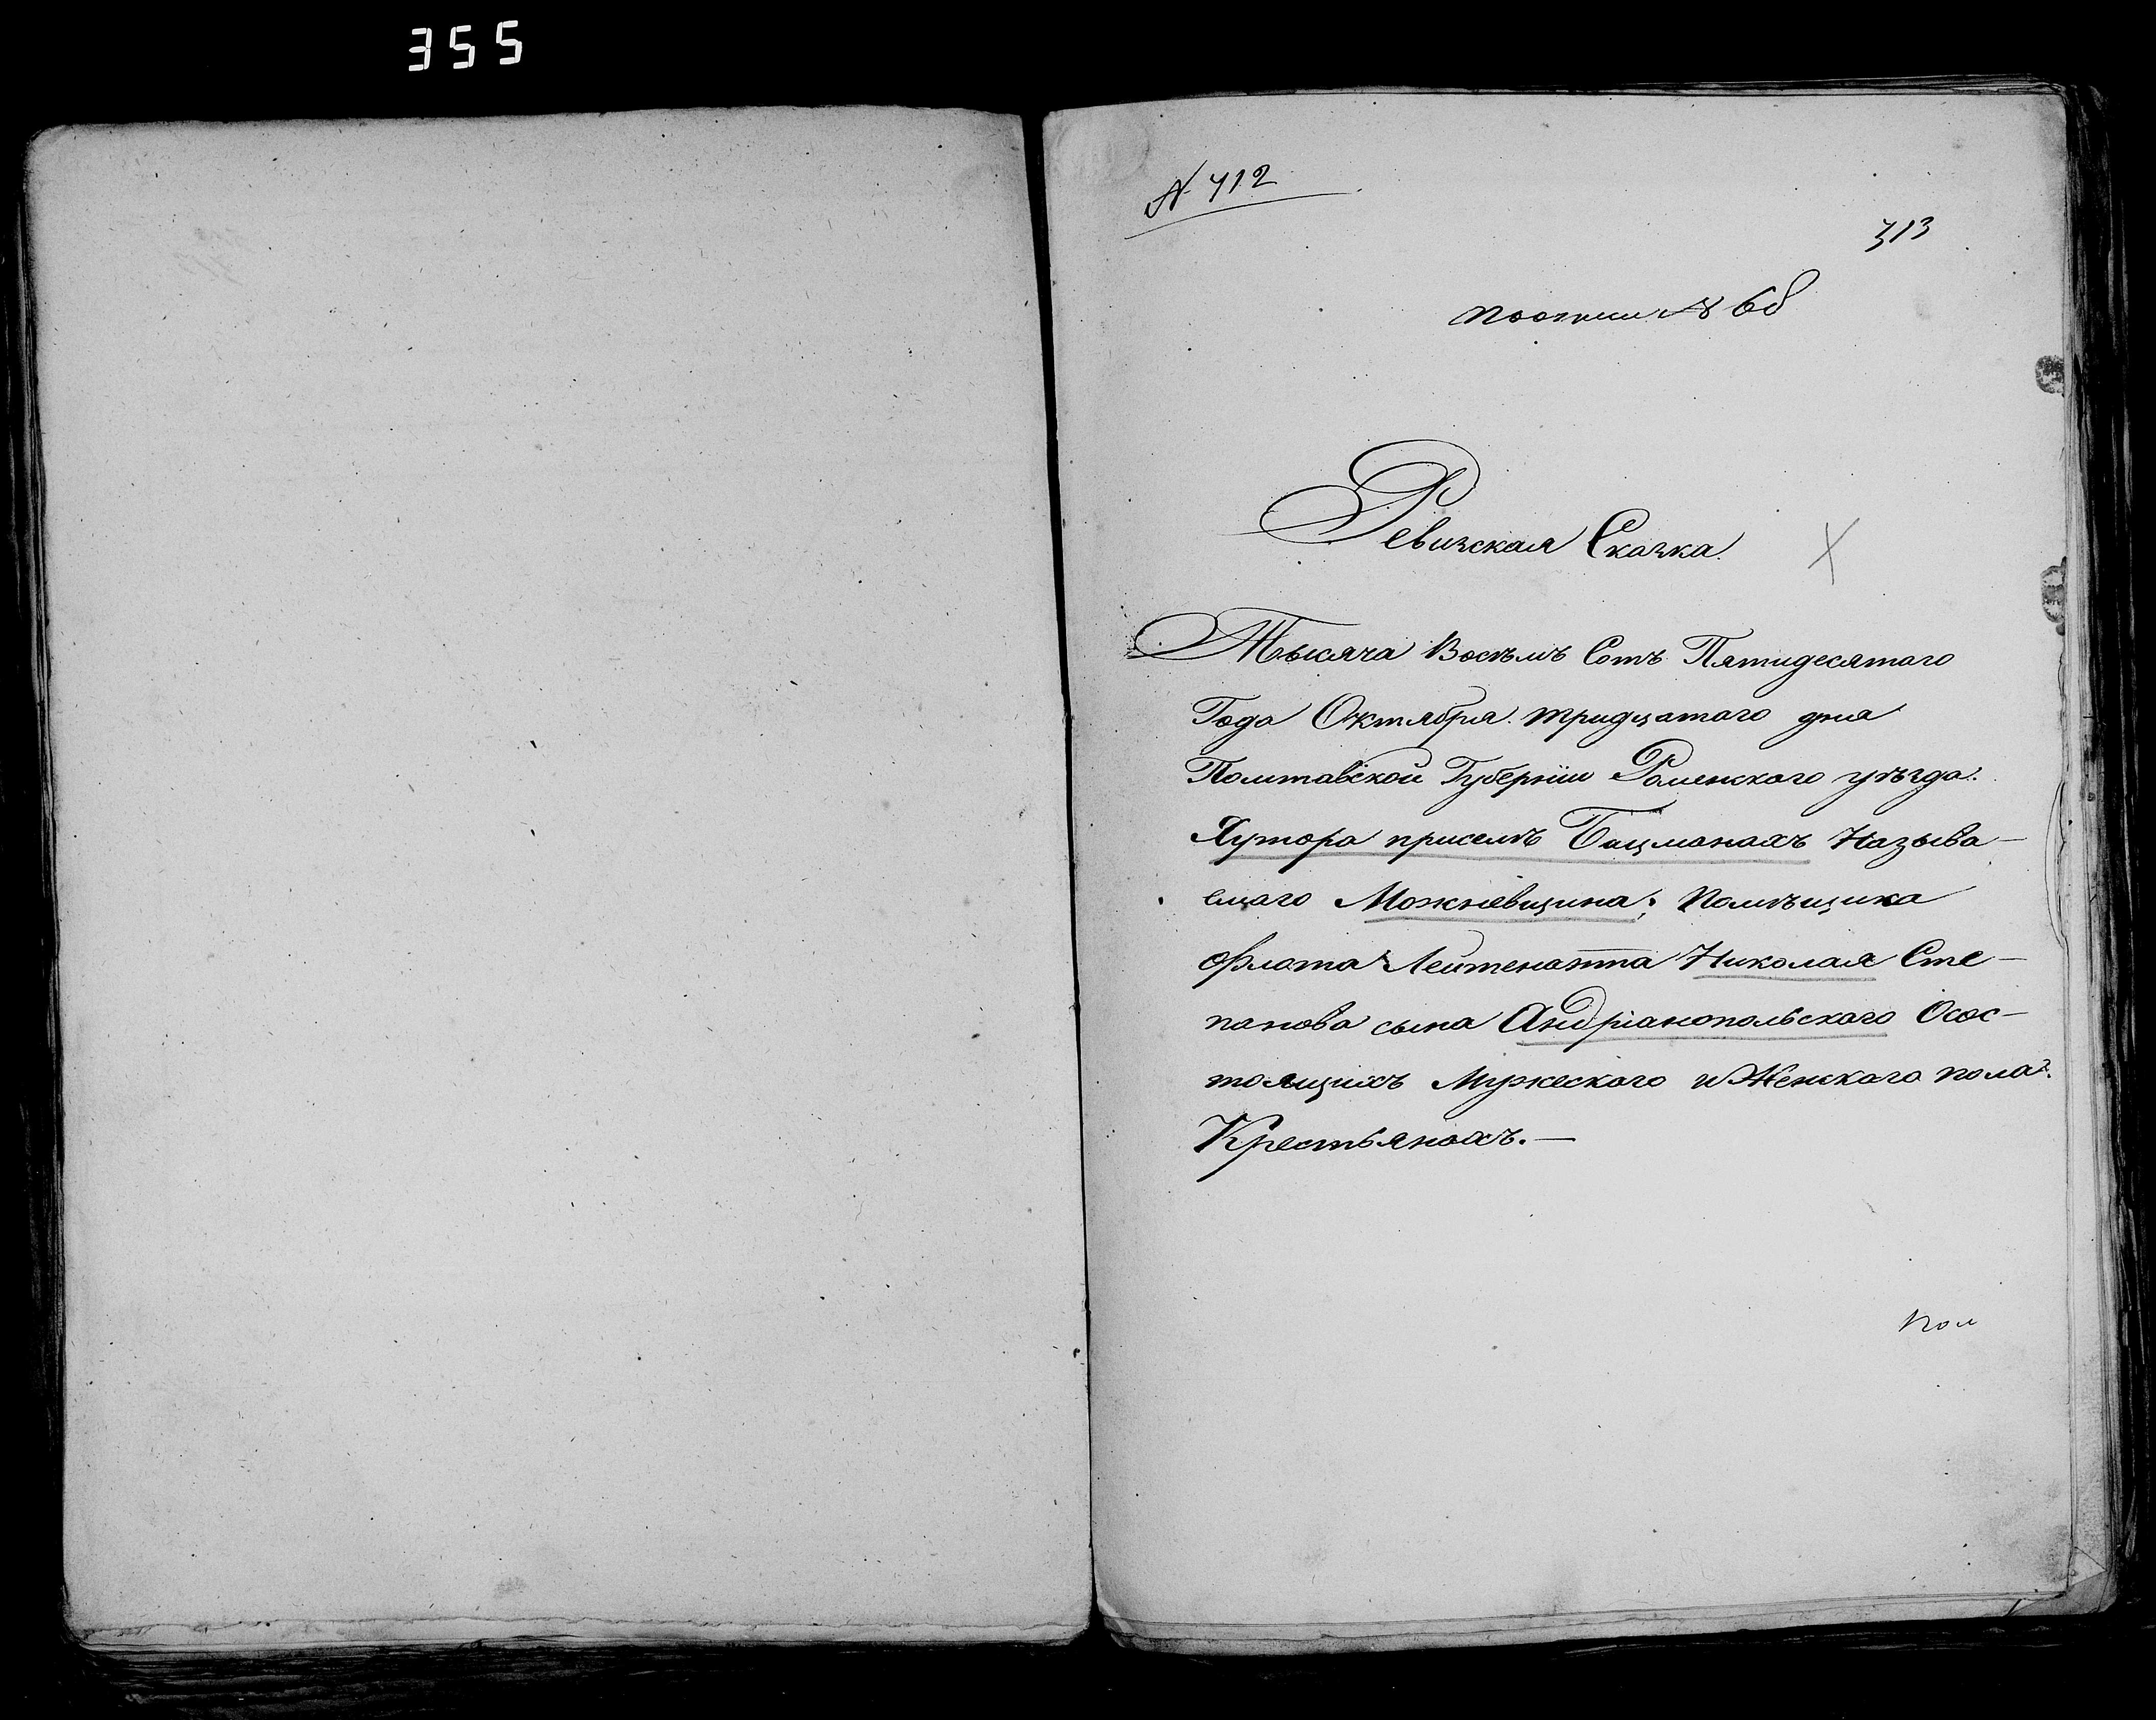 355
№ 712
313
№ 68
Ревизская Сказка.
Тысяча Восемъ Сотъ Пятидесятаго
Года Октября тридцатаго дня
Полтавской Губернiи Роменскаго уѣзда.
Хутора приселѣ Бацманахъ Называ–
емаго Можневщина; Помѣщика
Флота Лейтенанта Николая Сте–
панова сына Андрiанопольскаго Осос–
тоящихъ Мужескаго и Женскаго пола.
Крестьянахъ.—